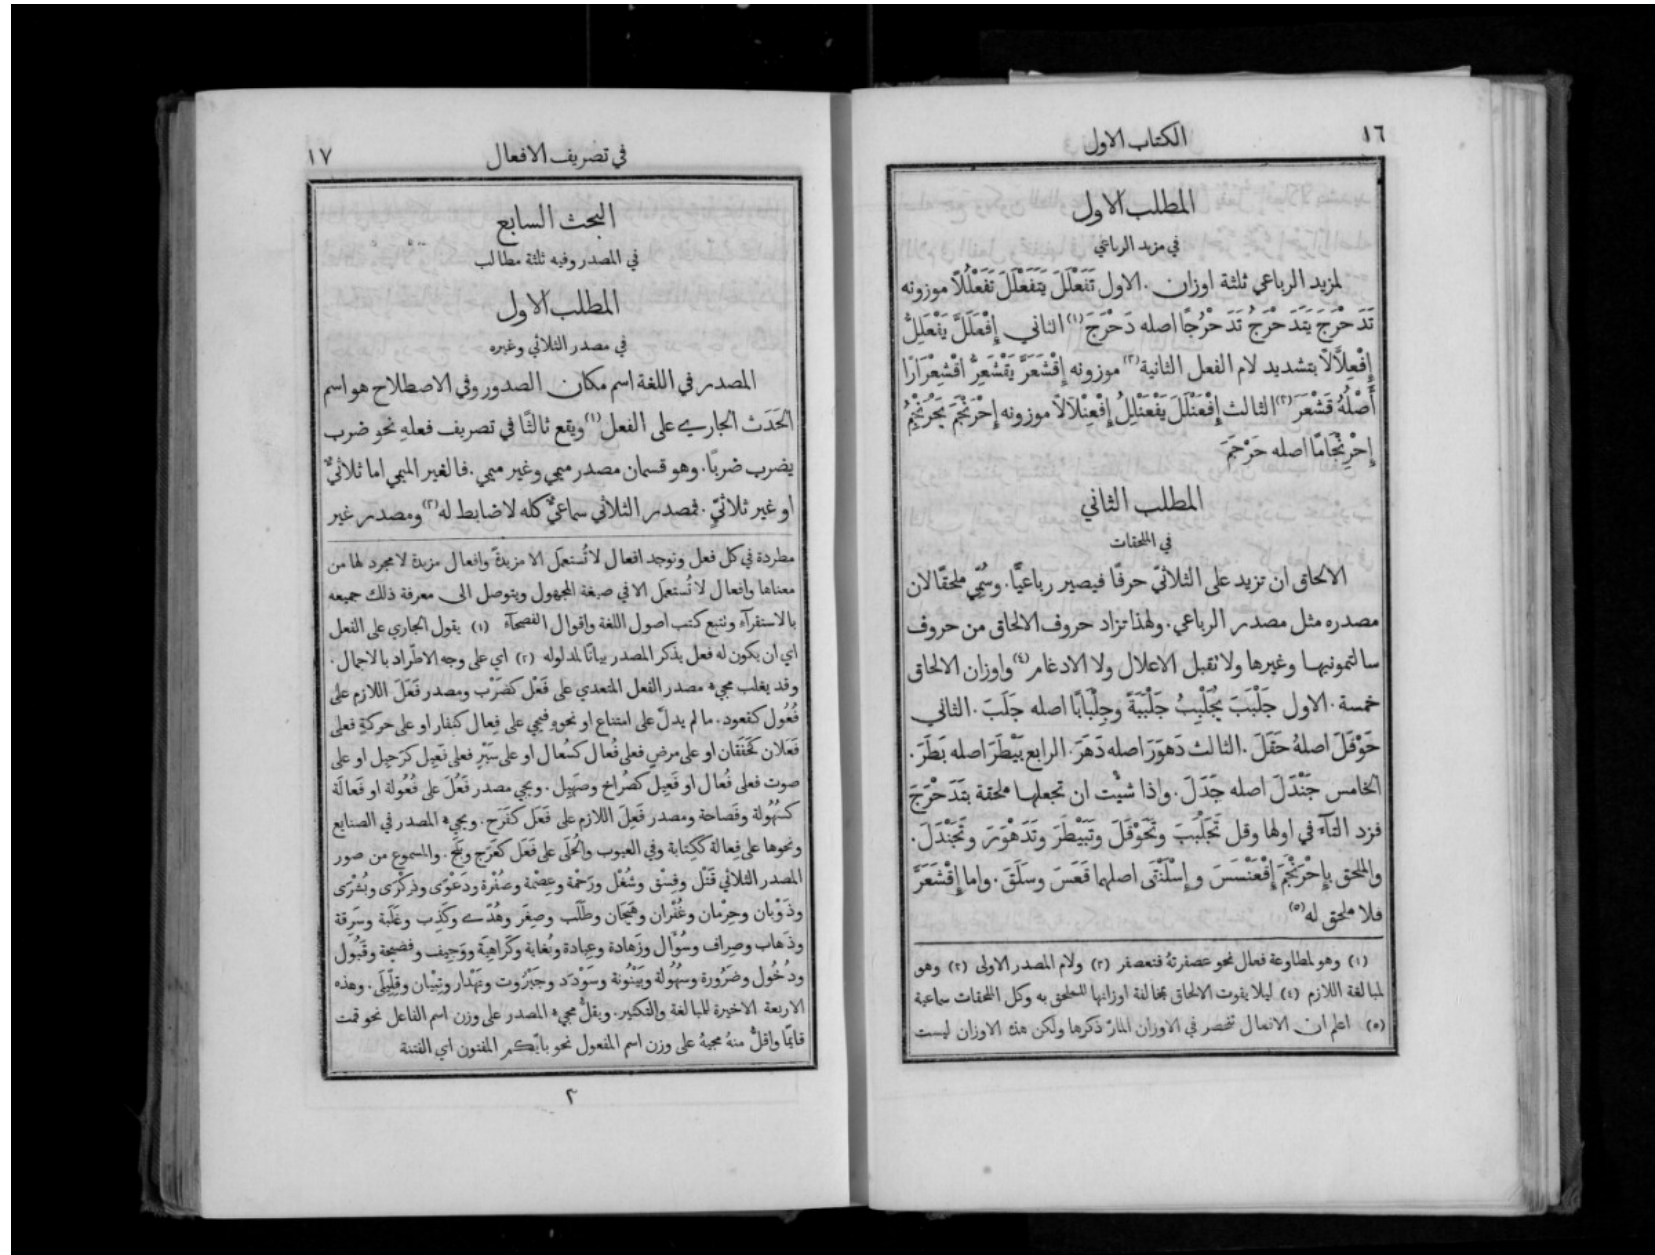 ١٦
الكتاب الاول
المطلب الاول
في مزيد الرباعي
لمزيد الرباعي ثلثة اوزان. الاول تَفَعْلَلَ يَتَفَعْلَلُ تَفَعْلُلًا موزونه
تَدَحْرَجَ يَتَدَحْرَجُ تَدَحْرُجًا اصله دَحْرَجَ (١) الثاني إِفْعَلَلَّ يَفْعَلِلُّ
إِفْعِلَّالًا بتشديد لام الفعل الثانية (٢) موزونه إِقْشَعَرَّ يَقْشَعِرُّ اقْشِعْرَارًا
أَصْلُهُ قَشْعَرَ (٣) الثالث إِفْعَنْلَلَ يَفْعَنْلِلُ إِفْعِنْلَالًا موزونه إِحْرَنْجَمَ يَحْرَنْجِمُ
إِحْرِنْجَامًا اصله حَرْجَمَ
المطلب الثاني
في الملحقات
الالحاق ان تزيد على الثلاثيّ حرفًا فيصير رباعيًّا. وسُمِّي ملحقًا لان
مصدره مثل مصدر الرباعي. ولهذا تزاد حروف الالحاق من حروف
سالتمونيها وغيرها ولا تقبل الاعلال ولا الادغام (٤) واوزان الالحاق
خمسة. الاول جَلْبَبَ يُجَلْبِبُ جَلْبَبَةً وجِلْبَابًا اصله جَلَبَ. الثاني
حَوْقَلَ اصلهُ حَقَلَ. الثالث دَهْوَرَ اصله دَهَرَ. الرابع بَيْطَرَ اصله بَطَرَ.
الخامس جَنْدَلَ اصله جَدَلَ. واذا شئت ان تجعلها ملحقة بتَدَحْرَجَ
فزد التاء في اولها وقل تَجَلْبَبَ وتَحَوْقَلَ وتَبَيْطَرَ وتَدَهْوَرَ وتَجَنْدَلَ.
والملحق بإِحْرَنْجَمَ إِقْعَنْسَسَ وإِسْلَنْقَى اصلهما قَعَسَ وسَلَقَ. واما إِقْشَعَرَّ
فلا ملحق له (٥)
(١) وهو لمطاوعة فعلل نحو عصفرتهُ فتعصفر (٢) ولام المصدر الاولى (٣) وهو
لمبالغة اللازم (٤) ليلا يفوت الالحاق بمخالفة اوزانها للملحق به وكل الملحقات سماعية
(٥) اعلم ان الافعال تنحصر في الاوزان المارّ ذكرها ولكن هذه الاوزان ليست
في تصريف الافعال
١٧
البحث السابع
في المصدر وفيه ثلثة مطالب
المطلب الاول
في مصدر الثلاثي وغيره
المصدر في اللغة اسم مكان الصدور وفي الاصطلاح هو اسم
الحَدَث الجاري على الفعل (١) ويقع ثالثًا في تصريف فعلهِ نحو ضرب
يضرب ضربًا. وهو قسمان مصدر ميمي وغير ميمي. فالغير الميمي اما ثلاثيٌّ
او غير ثلاثيّ. فمصدر الثلاثي سماعيٌّ كله لا ضابط له (٢) ومصدر غير
مطردة في كل فعل وتوجد افعال لا تُستعمَل الا مزيدةً وافعال مزيدة لا مجرد لها من
معناها وافعال لا تُستعمَل الا في صيغة المجهول ويتوصل الى معرفة ذلك جميعه
بالاستقرآء وتتبع كتب اصول اللغة واقوال الفصحآء (١) يقول الجاري على الفعل
اي ان يكون له فعل يذكر المصدر بيانًا لمدلوله (٢) اي على وجه الاطّراد بالاجمال.
وقد يغلب مجيء مصدر الفعل المتعدي على فَعْل كضَرْب ومصدر فَعَلَ اللازم على
فُعُول كقعود. ما لم يدلّ على امتناع او نحوهِ فيجي على فِعال كنفار او على حركةٍ فعلى
فَعَلان كخَفَقَان او على مرضٍ فعلى فُعال كسُعال او على سَيْرٍ فعلى فَعِيل كرَحيل او على
صوت فعلى فُعال او فَعِيل كصُراخ وصَهِيل. ويجي مصدر فَعُلَ على فُعُولة او فَعالَة
كسُهُولة وفَصاحة ومصدر فَعِلَ اللازم على فَعَل كفَرَح. ويجيء المصدر في الصنايع
ونحوها على فِعالة ككِتابة وفي العيوب والحُلَى على فَعَل كعَرَج وبَلَج. والمسموع من صور
المصدر الثلاثي قَتْل وفِسْق وشُغْل ورَحْمة وعِصْمة وصُفْرة ودَعْوَى وذِكْرَى وبُشْرَى
وذَوْبان وحِرْمان وغُفْران وهَيَجان وطَلَب وصِغَر وهُدًى وكَذِب وغَلَبة وسَرِقة
وذَهاب وصِراف وسُؤَال وزَهادة وعِبادة وبُغاية وكَرَاهِيَة ووَجِيف وفضيحة وقَبُول
ودُخُول وضَرُورة وسُهُولة وبَيْنُونة وسَوْدَد وجَبَرُوت وتَهْدار وتِبْيان وقِتِّيلَى. وهذه
الاربعة الاخيرة للمبالغة والتكثير. ويقلُّ مجيء المصدر على وزن اسم الفاعل نحو قمت
قائِمًا واقلُّ منهُ مجيهُ على وزن اسم المفعول نحو بأَيِّكم المفتون اي الفتنة
٣